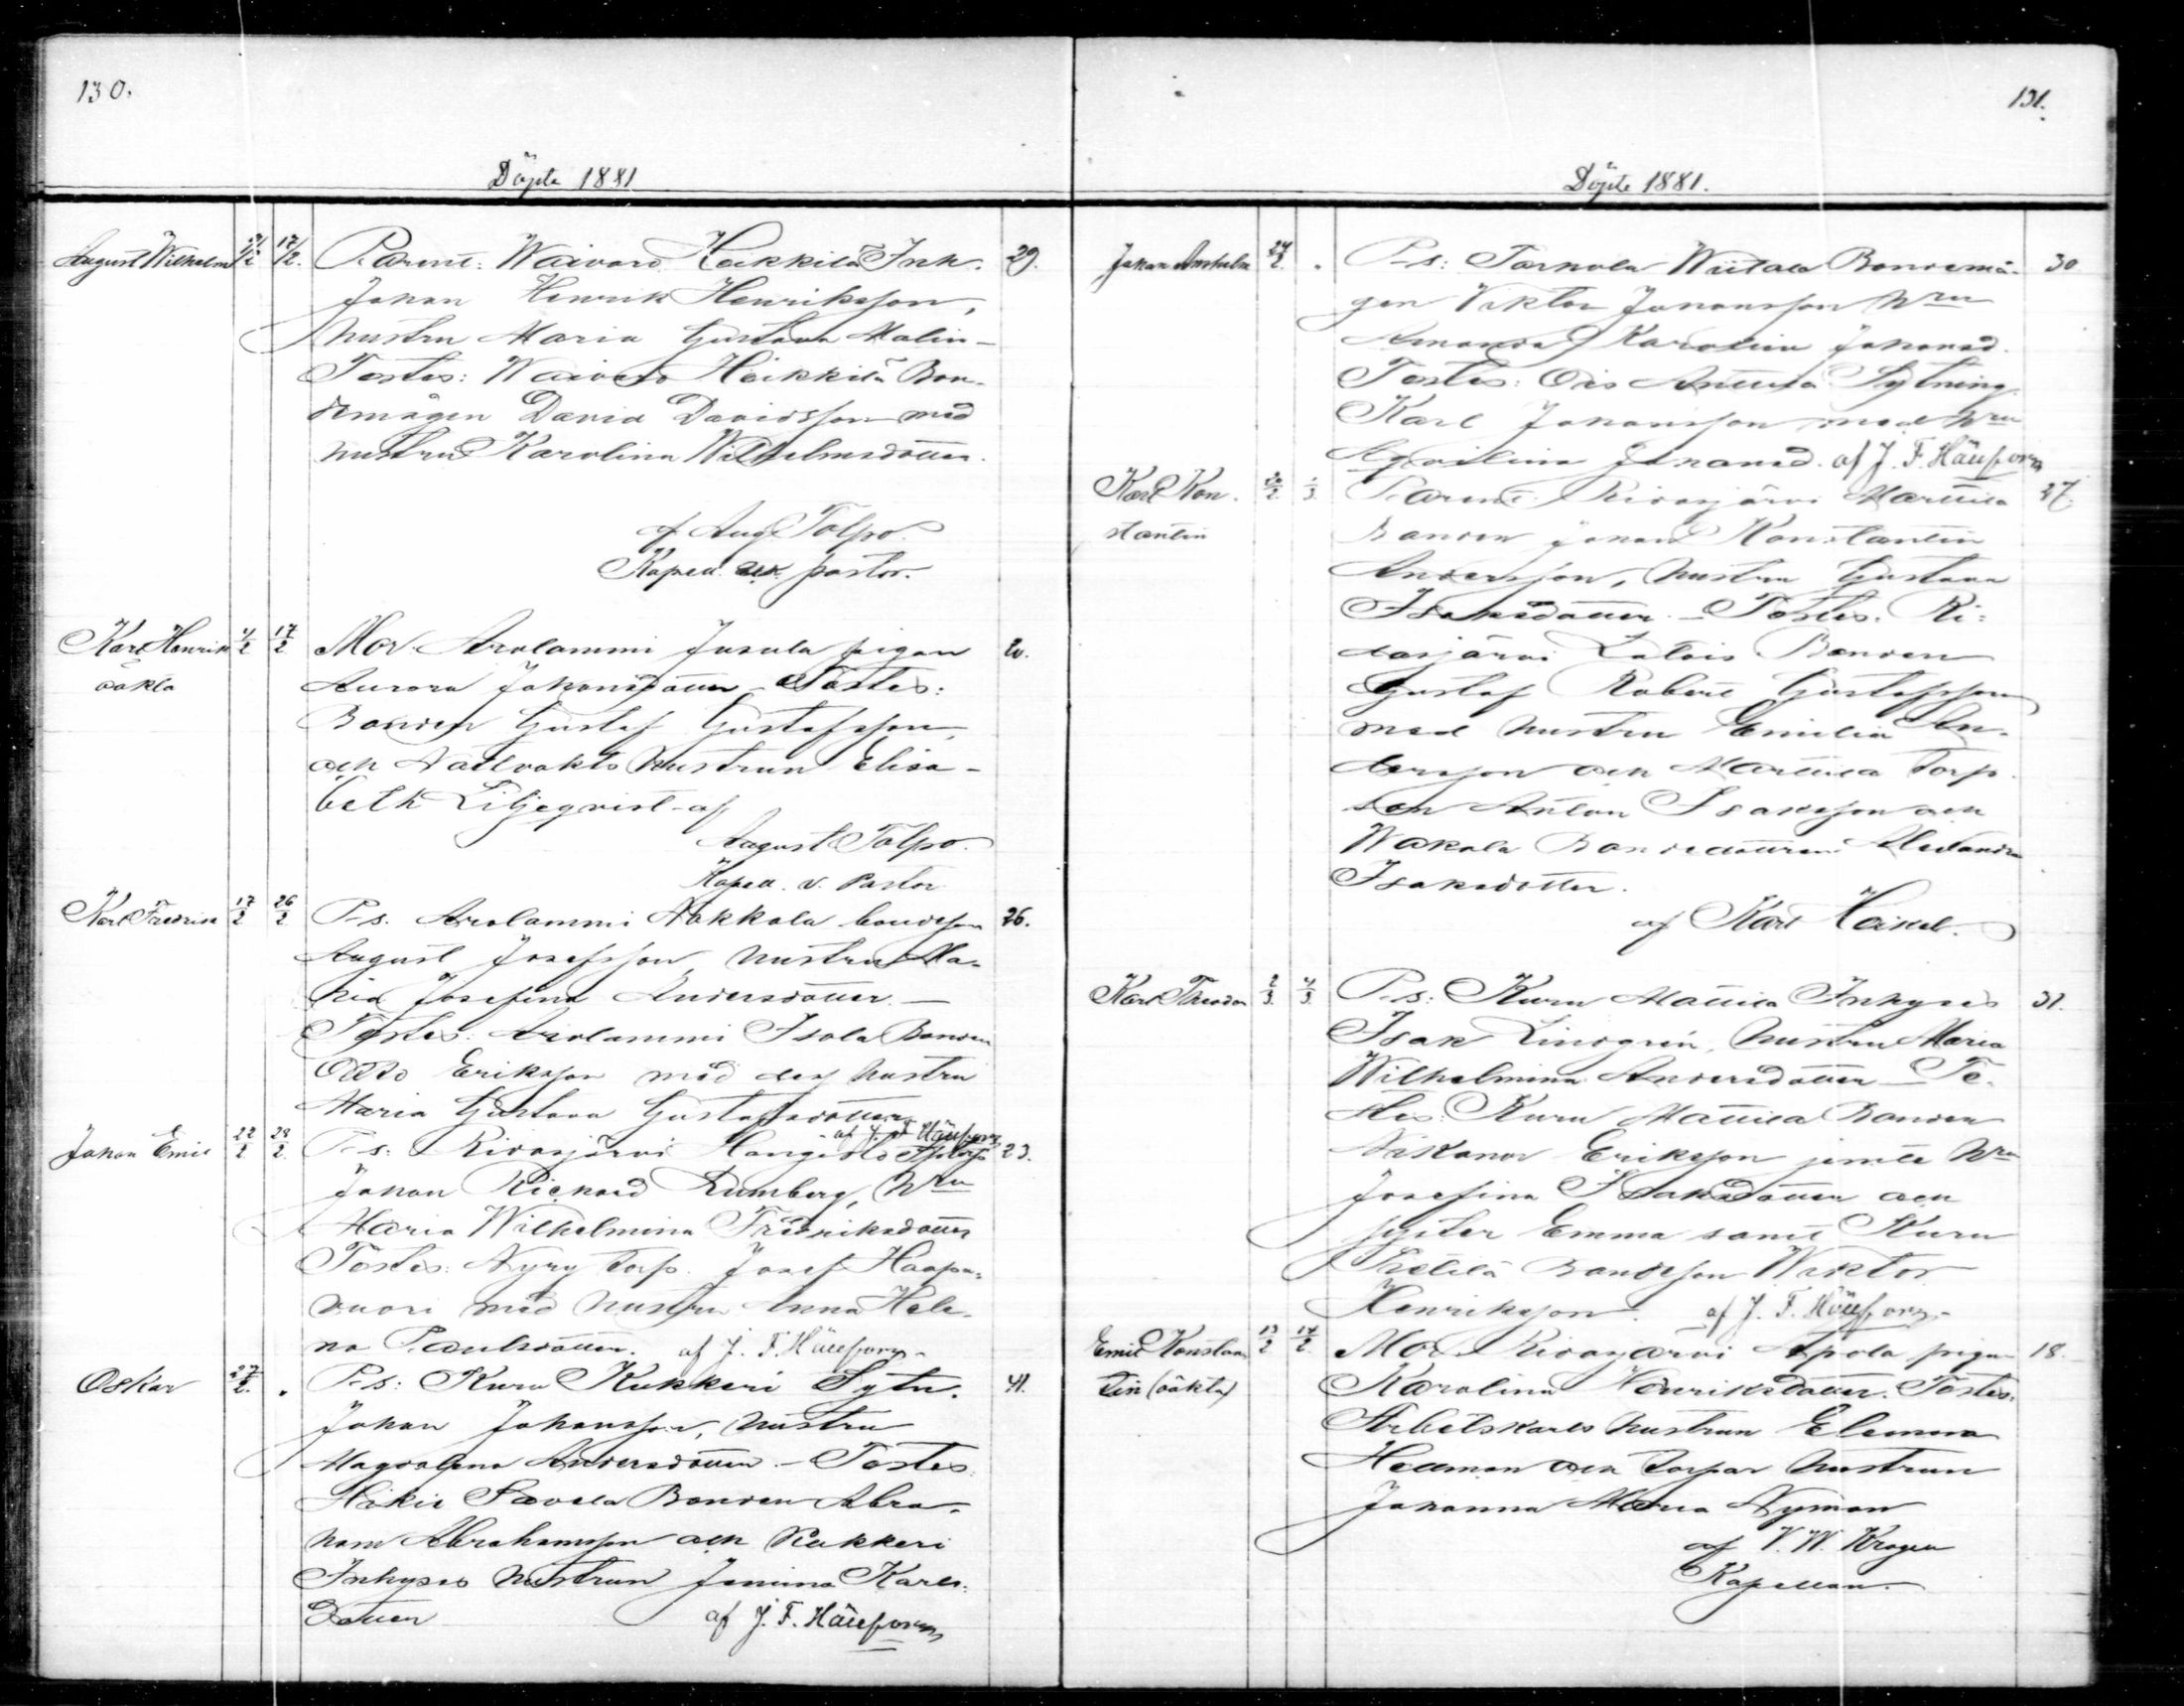 130.
Döpte 1881
August Wilhelm 17/2. Parent: Waivaro Heikkilä Inh. 29.
Johan Henrik Henriksson,
hustru Maria Gustava Malin-
Testes: Waivaro Heikkilä Bon-
demågen David Davidsson med
hustru Karolina Wilhelmsdotter.
af Aug. Tolpo.
Kapell. pastor.
Karl Henrik 17/2 Mor. Arolammi Jusula pigan 20.
oäkta Aurora Johansdotter - Testes:
Bonden Gustaf Gustafsson,
och Hustrun Elisa-
beth Liljeqvist - af
August Tolpo.
Kapell. v. Pastor
Karl Fredrik 17/2 26/2 P-s. Arolammi Nakkola bondeson 26.
August Josefsson, hustru Ma-
ria Josefina Andersdotter. —
Testes: Arolammi Isola Bonden
Otto Eriksson med dess hustru
Maria Gustava Gustafsdotter
af J. F. Hällfors
Johan Emil 22/2 28/2 P-s: Ridasjärvi Hangisto 23.
Johan Rickard Lumberg, Hru
Maria Wilhelmina Fredriksdotter
Testes: Nyry torp. Josef Haapa-
vuori med hustru Anna Hele-
na Paulsdotter. af J. F. Hällfors -
Oskar 27/2. " P-s: Kuru Kukkeri Sytn. 41.
Johan Johansson, hustru
Magdalena Andersdotter. - Testes
Hikiä Pavola Bonden Abra-
ham Abrahamsson och Kukkeri
Inhyses hustrun Janina Karls-
dotter af J. F. Hällfors
131.
Döpte 1881.
Johan 24/2. " P-s: Tarkola Wiitala Bondemå- 30
gen Viktor Johansson Hru
Amanda Karolina Johansd.
Testes: Ois Anttila Sytning
Karl Johansson med Hru
Johansd. af J. F. Hällfors
Karl Kon- 20/2 1/3. Parent: Ridasjärvi Marttila 27.
stantin Bonden Johan Konstantin
Andersson, hustru Gustava
Isaksdotter. - Testes. Ri-
dasjärvi Latvis Bonden
Gustaf Robert Gustafsson
med hustru Emilia An-
dersson och Marttila torp.
son Anton Isaksson och
Wakola Bondedottren Alexandra
Isaksdotter.
af Karl Heikel.
Karl Theodor 2/3. 4/3. P-s: Kuru Mattila Inhyses 31.
Isak Lindgrén, hustru Maria
Wilhelmina Andersdotter - Te-
stes: Kuru Mattila Bonden
Nikanor Eriksson jemte Hru
Josefina Isaksdotter och
syster Emma samt Kuru
Bondeson Wiktor
Henriksson. af J. F. Hällfors -
Emil Konstan- 13/2 14/2. Mor. Ridasjärvi Apola pigan 18.
tin (oäkta) Karolina Henriksdotter. Testes:
Arbetskarls hustrun Eleonora
Hellman och torpar hustrun
Johanna Maria Nyman
af V. W. Krogen
Kapellan.